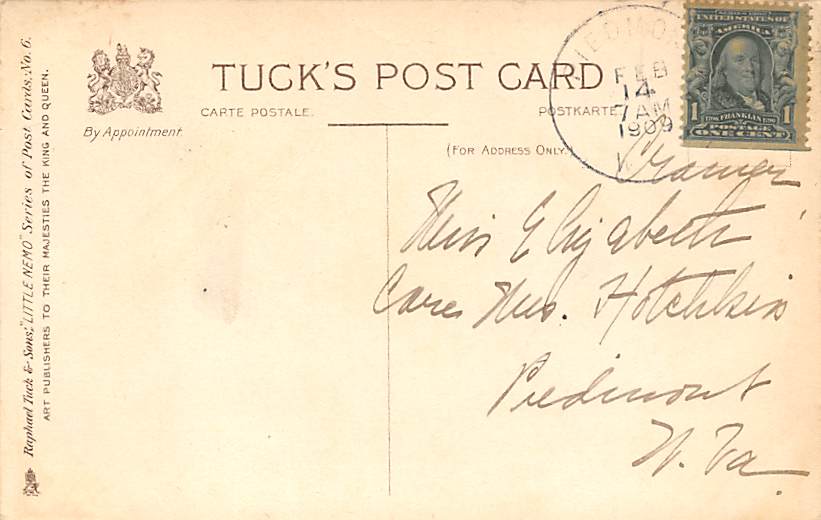 Raphael Tuck & Sons' "LITTLE NEMO" Series of Post Cards, No. 6.
ART PUBLISHERS TO THEIR MAJESTIES THE KING AND QUEEN.
By Appointment.
TUCK'S POST CARD
CARTE POSTALE.
POSTKARTE
(FOR ADDRESS ONLY.)
FEB
14
7 AM
1909
UNITED STATES OF
AMERICA
1 FRANKLIN 1
POSTAGE
ONE CENT
Cramer
Miss Elizabeth
Care Mrs. Hotchkiss
Piedmont
W. Va.